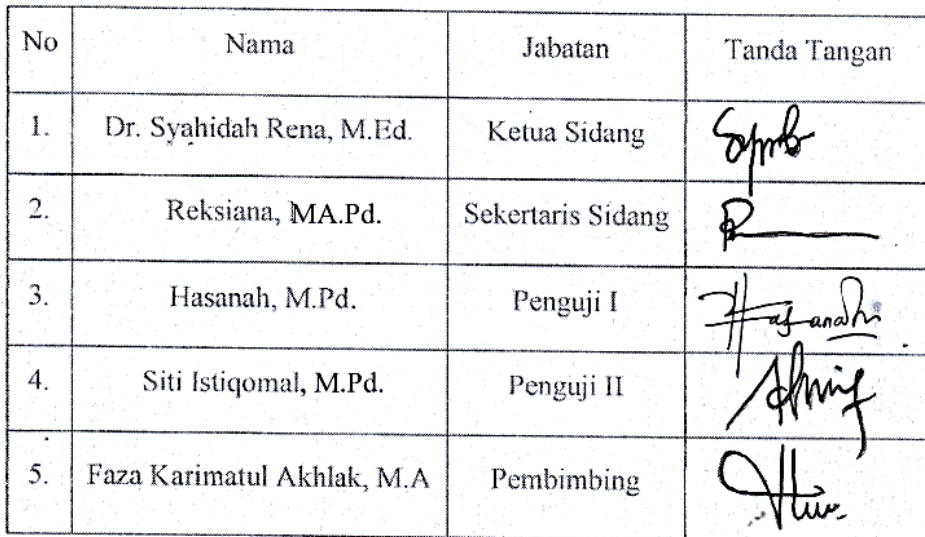 No Nama Jabatan Tanda Tangan
1. Dr. Syahidah Rena, M.Ed. Ketua Sidang
2. Reksiana, MA.Pd. Sekertaris Sidang
3. Hasanah, M.Pd. Penguji I Hasanah
4. Siti Istiqomal, M.Pd. Penguji II
5. Faza Karimatul Akhlak, M.A Pembimbing